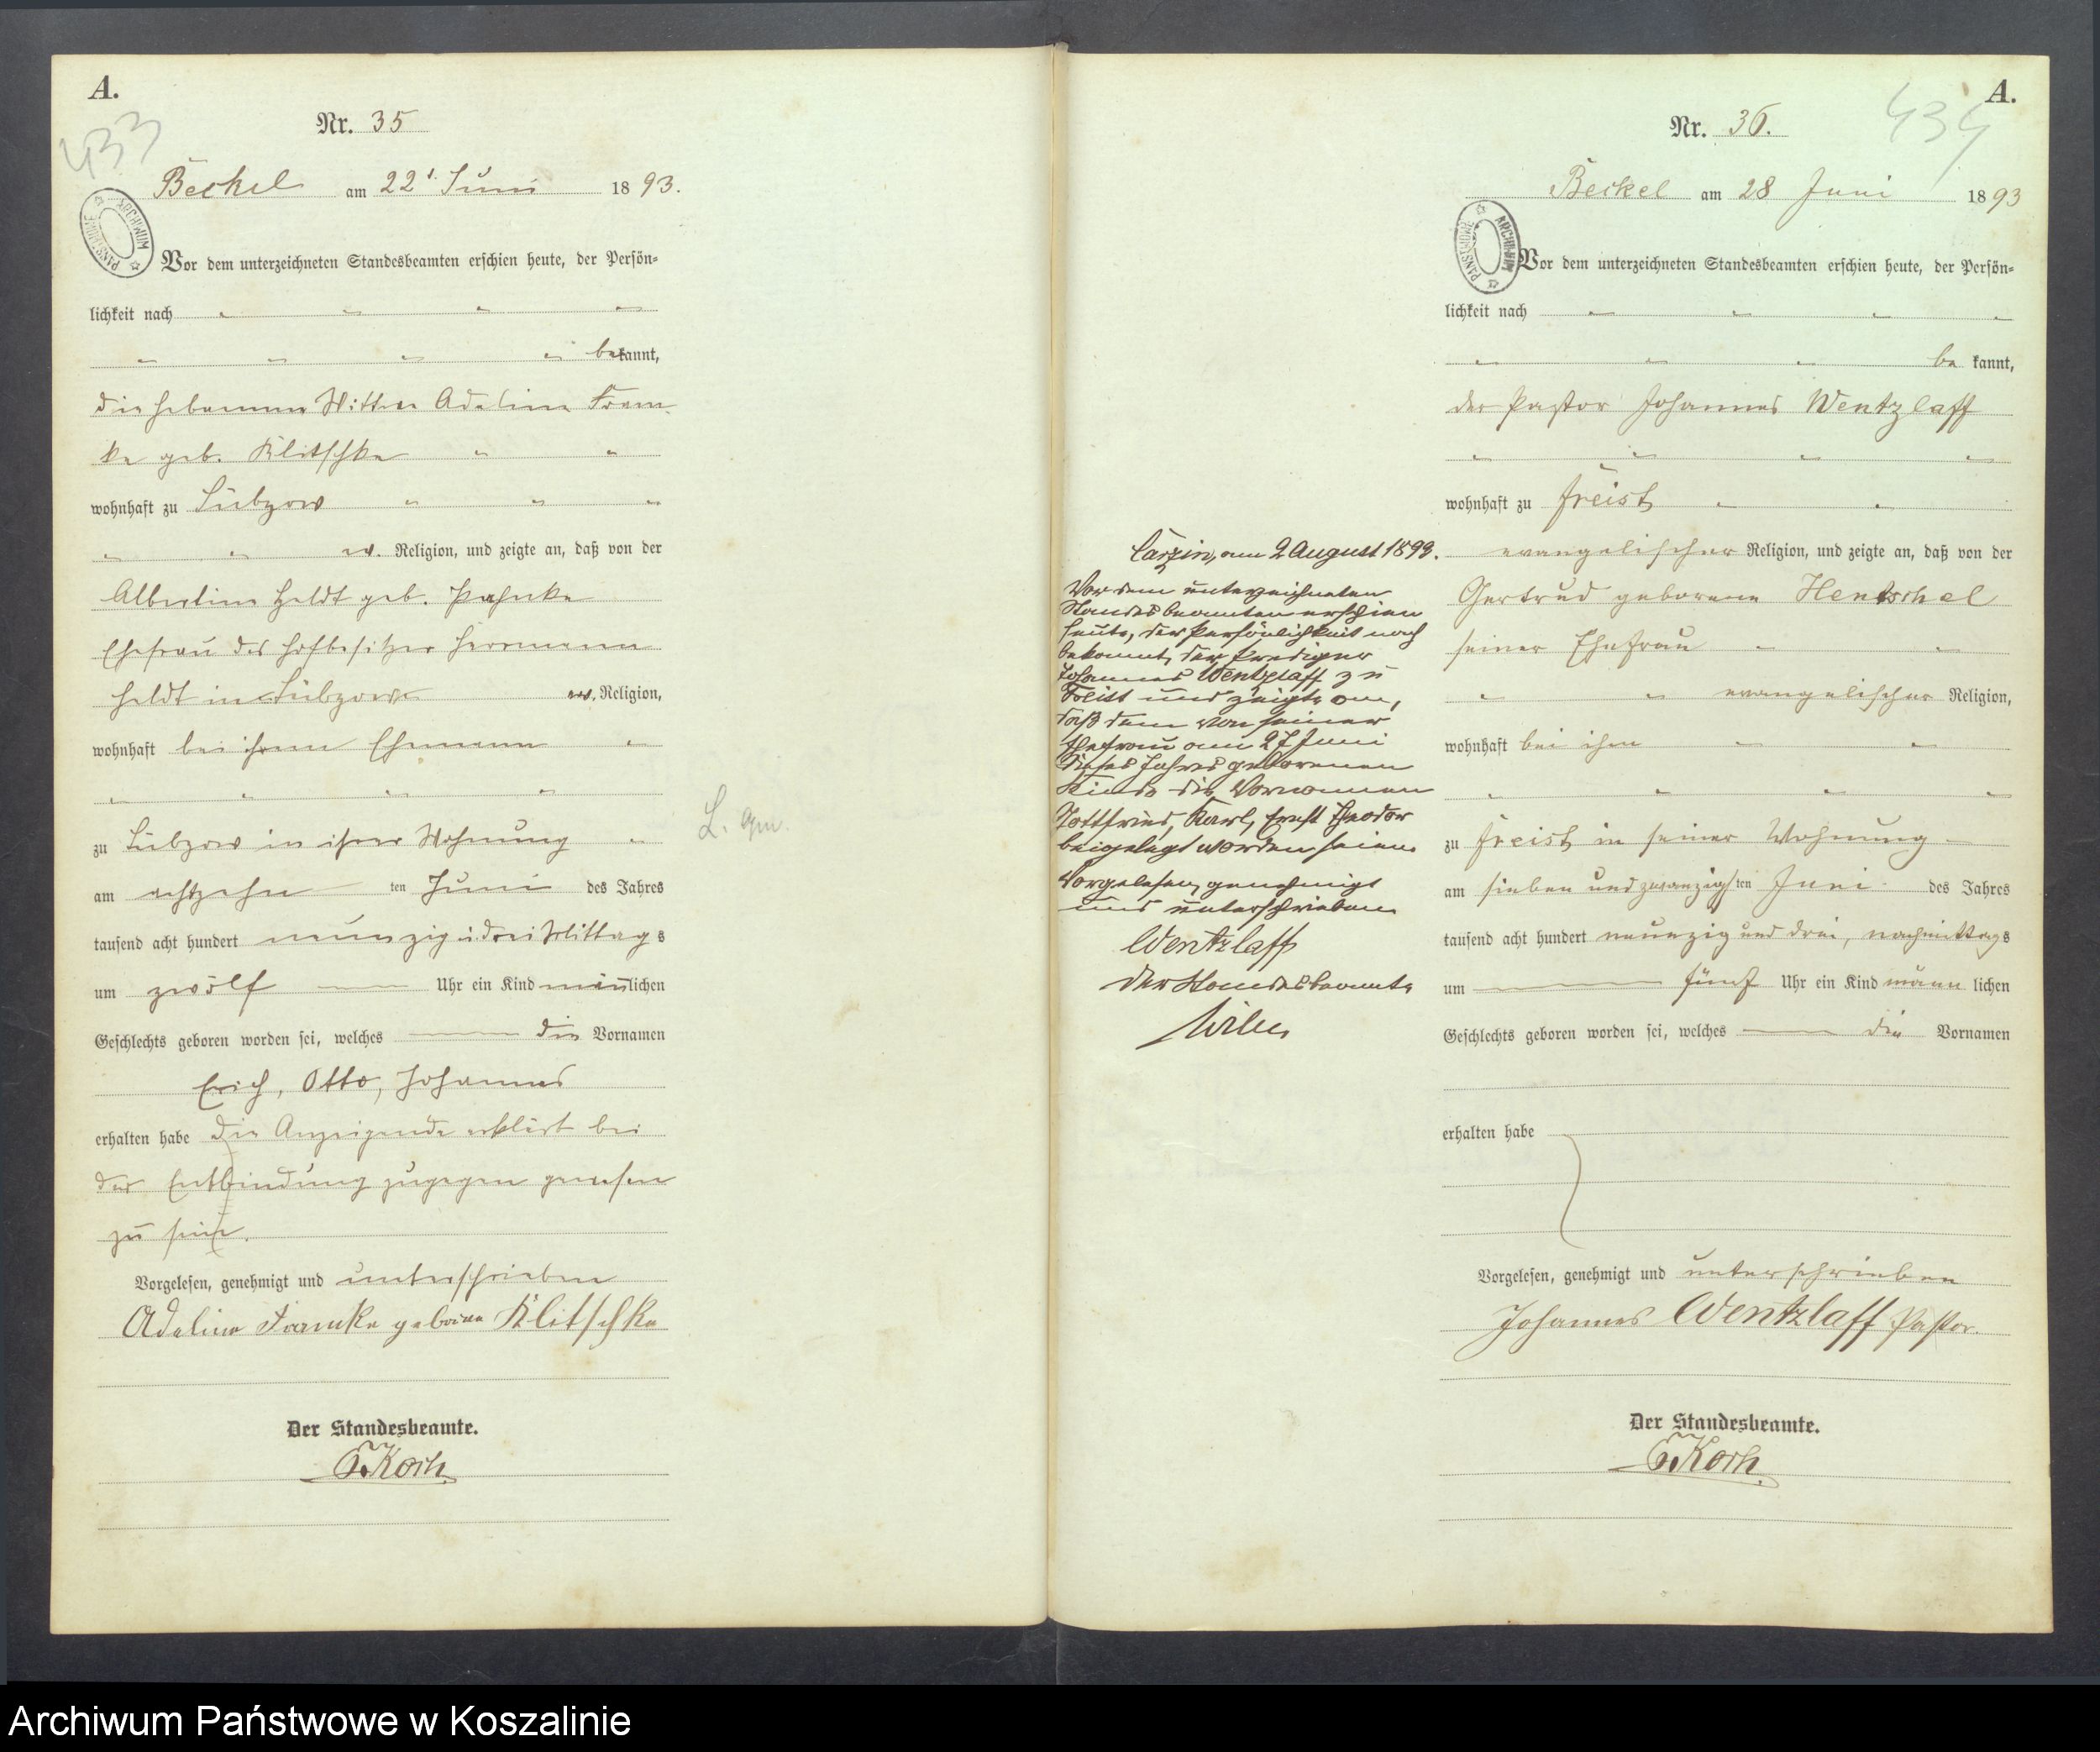 A.
433
Nr. 35
Beckel am 22t. Juni 1893.
ARCHIWUM PAŃSTWOWE
Vor dem unterzeichneten Standesbeamten erschien heute, der Persön=
lichkeit nach
bekannt,
die Hebamme Wittwe Adeline Fram-
ke geb. Klitschke
wohnhaft zu Lübzow
ev. Religion, und zeigte an, daß von der
Albertine Heldt geb. Papenke
Ehefrau des Hofbesitzer Herrmann
Heldt in Lübzow ev. Religion,
wohnhaft bei ihrem Ehemann
zu Lübzow in ihrer Wohnung
am achtzehn ten Juni des Jahres
tausend acht hundert neunzig u. drei Mittags
um zwölf Uhr ein Kind männlichen
Geschlechts geboren worden sei, welches die Vornamen
Erich, Otto, Johannes
erhalten habe die Anzeigende erklärt bei
der Entbindung zugegen gewesen
zu sein.
Vorgelesen, genehmigt und unterschrieben
Adeline Framke geborene Klitschke
Der Standesbeamte.
Koch.
A.
434
Nr. 36.
Beckel am 28 Juni 1893
ARCHIWUM PAŃSTWOWE
Vor dem unterzeichneten Standesbeamten erschien heute, der Persön=
lichkeit nach
be kannt,
der Pastor Johannes Wentzlaff
wohnhaft zu Freist
evangelischer Religion, und zeigte an, daß von der
Gertrud geborene Hentschel
seiner Ehefrau
evangelischer Religion,
wohnhaft bei ihm
zu Freist in seiner Wohnung
am sieben und zwanzigsten Juni des Jahres
tausend acht hundert neunzig und drei, nachmittags
um fünf Uhr ein Kind männ lichen
Geschlechts geboren worden sei, welches die Vornamen
erhalten habe
Vorgelesen, genehmigt und unterschrieben
Johannes Wentzlaff Pastor.
Der Standesbeamte.
Koch.
Carzin, am 2 August 1893.
Vor dem unterzeichneten
Standesbeamten erschien
heute, der Persönlichkeit nach
bekannt, der Prediger
Johannes Wentzlaff zu
Freist und zeigte an,
daß dem von seiner
Ehefrau am 27 Juni
dieses Jahres geborenen
Kinde die Vornamen
Gottfried, Karl, Ernst Theodor
beigelegt worden seien.
Vorgelesen, genehmigt
und unterschrieben
Wentzlaff
Der Standesbeamte
Archiwum Państwowe w Koszalinie